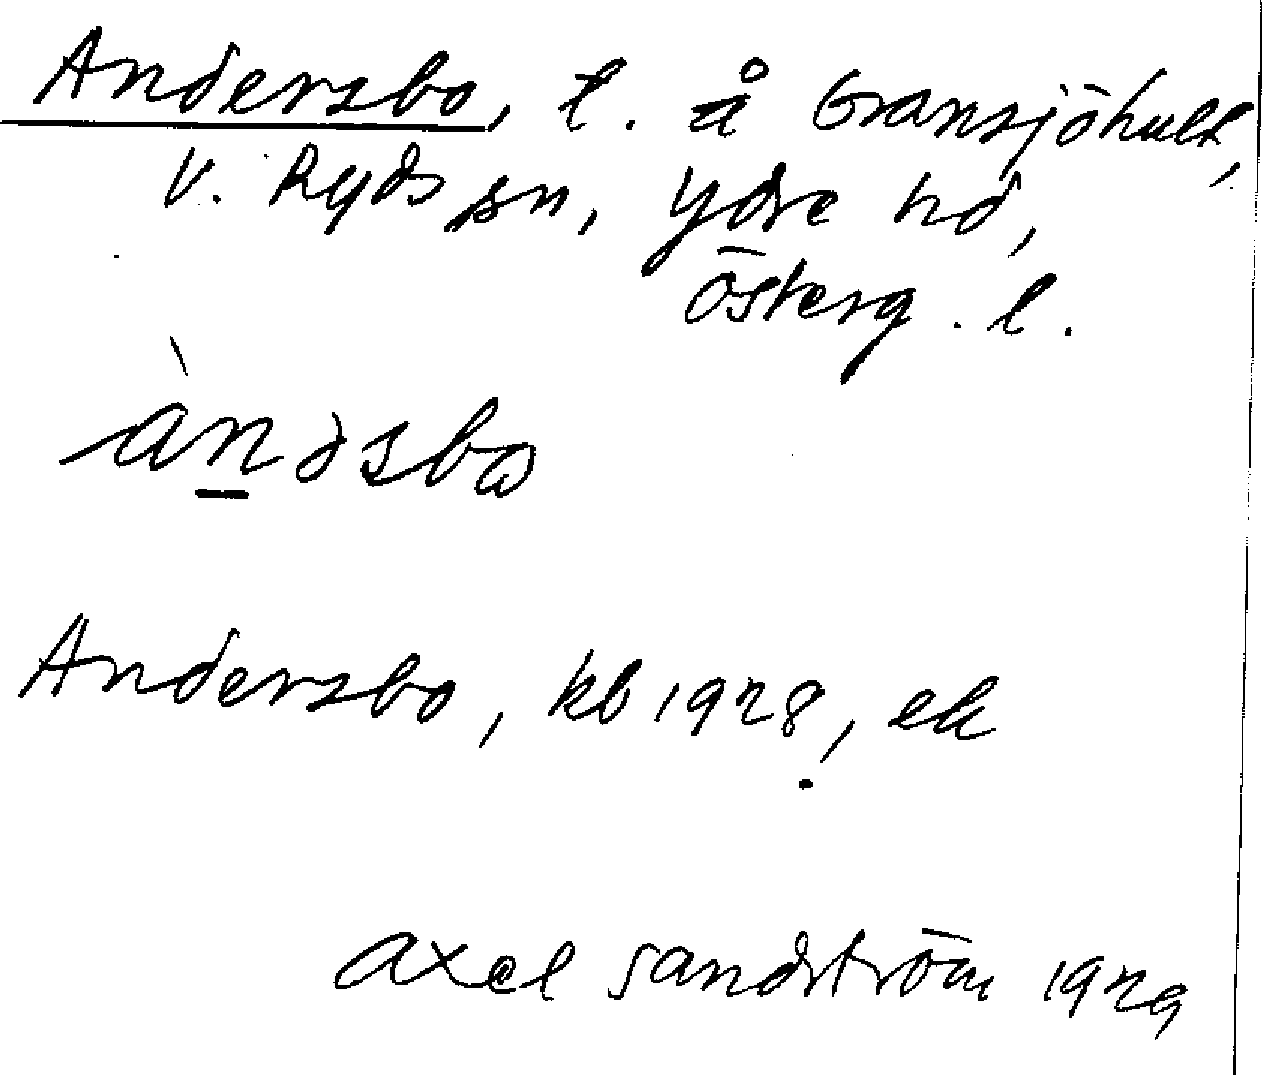 Andersbo, t. å Gransjöhult,
V. Ryds sn, Ydre hd,
Österg. l.
àn̲əsbo
Andersbo, kb 1928, ek
Axel Sandström 1929